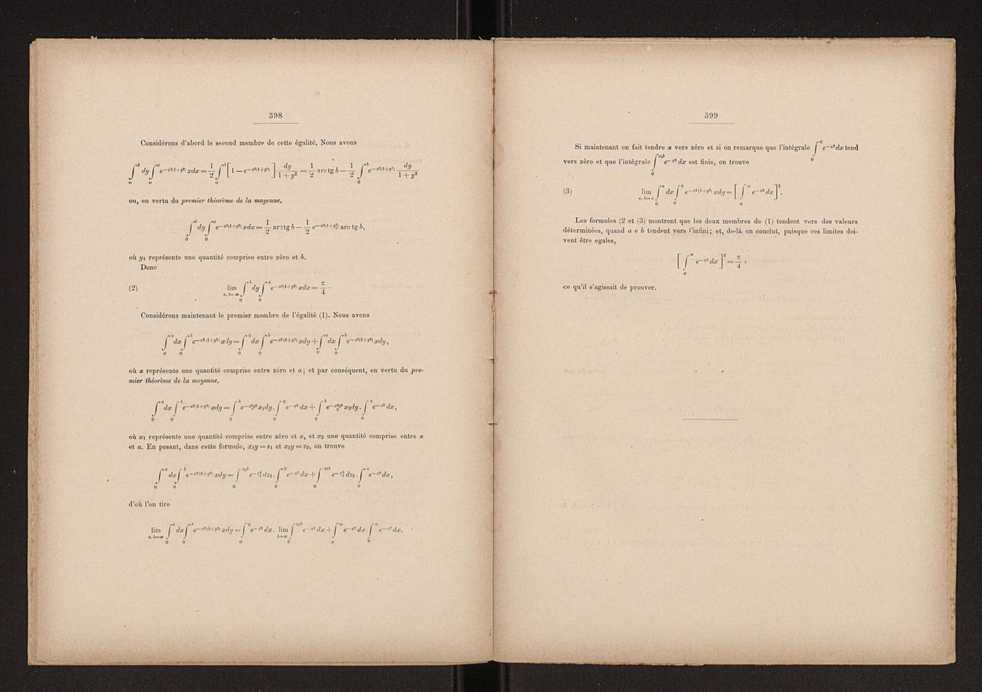 398
Considérons d'abord le second membre de cette égalité. Nous avons
∫₀ᵇ dy ∫₀ᵃ e^{−x²(1+y²)} xdx = 1/2 ∫₀ᵇ [1 − e^{−a²(1+y²)}] dy/(1+y²) = 1/2 arc tg b − 1/2 ∫₀ᵇ e^{−a²(1+y²)} dy/(1+y²)
ou, en vertu du premier théorème de la moyenne,
∫₀ᵇ dy ∫₀ᵃ e^{−x²(1+y²)} xdx = 1/2 arc tg b − 1/2 e^{−a²(1+y₁²)} arc tg b,
où y₁ représente une quantité comprise entre zéro et b.
Donc
(2) lim_{a, b=∞} ∫₀ᵇ dy ∫₀ᵃ e^{−x²(1+y²)} xdx = π/4
Considérons maintenant le premier membre de l'égalité (1). Nous avons
dx e^{−x²(1+y²)} xdy = dx e^{−x²(1+y²)} xdy + dx e^{−x²(1+y²)} xdy,
où α représente une quantité comprise entre zéro et a; et par conséquent, en vertu du pre-
mier théorème de la moyenne,
dx e^{−x²(1+y²)} xdy = x₁dy. e^{−x²} dx + x₂dy. e^{−x²} dx,
où x₁ représente une quantité comprise entre zéro et α, et x₂ une quantité comprise entre α
et a. En posant, dans cette formule, x₁y = z₁ et x₂y = z₂, on trouve
dx e^{−x²(1+y²)} xdy = dz₁. e^{−x²} dx + dz₂. e^{−x²} dx,
d'où l'on tire
lim dx e^{−x²(1+y²)} xdy = e^{−x²} dx. lim e^{−x²} dx + e^{−x²} dx. e^{−x²} dx.
399
Si maintenant on fait tendre α vers zéro et si on remarque que l'intégrale ∫₀^α e^{−x²} dx tend
vers zéro et que l'intégrale e^{−x²} dx est finie, on trouve
(3) lim_{a, b=∞} ∫₀ᵃ dx ∫₀ᵇ e^{−x²(1+y²)} xdy = [∫₀^∞ e^{−x²} dx]².
Les formules (2 et (3) montrent que les deux membres de (1) tendent vers des valeurs
déterminées, quand a e b tendent vers l'infini; et, de-là on conclut, puisque ces limites doi-
vent être egales,
[∫₀^∞ e^{−x²} dx]² = π/4,
ce qu'il s'agissait de prouver.